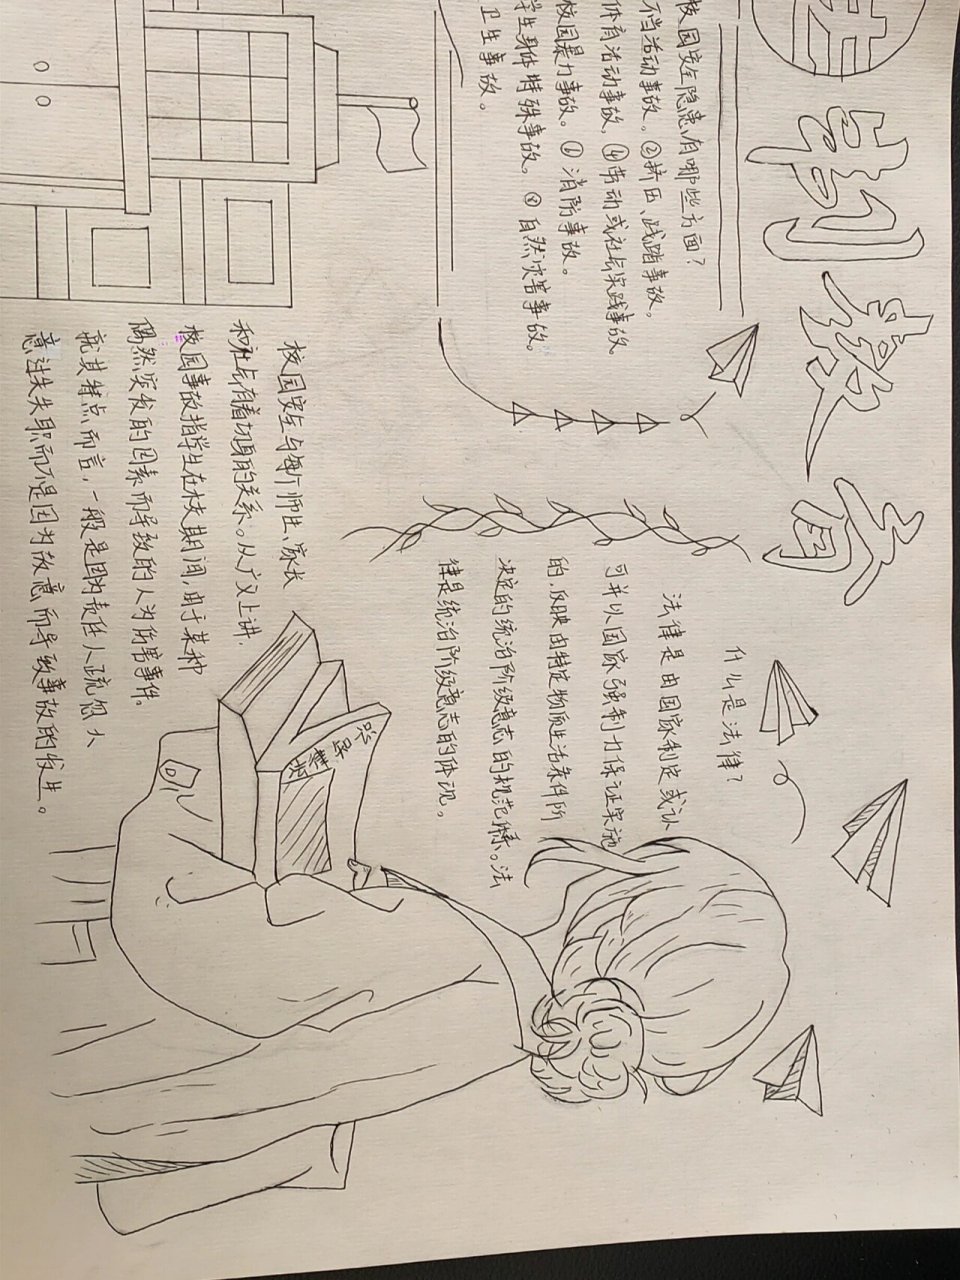 制教育
校园安全隐患有哪些方面?
不当活动事故。②挤压、践踏事故。
体育活动事故。④劳动或社会实践事故。
校园暴力事故。①消防事故。
学生身体特殊事故。⑧自然灾害事故。
卫生事故。
什么是法律?
法律是由国家制定或认
可并以国家强制力保证实施
的,反映由特定物质生活条件所
决定的统治阶级意志的规范体系。法
律是统治阶级意志的体现。
校园安全与每个师生、家长
和社会有着切身的关系。从广义上讲,
校园事故指学生在校期间,由于某种
偶然突发的因素而导致的人为伤害事件。
就其特点而言,一般是因为责任人疏忽大
意过失失职而不是因为故意而导致事故的发生。
法律导论